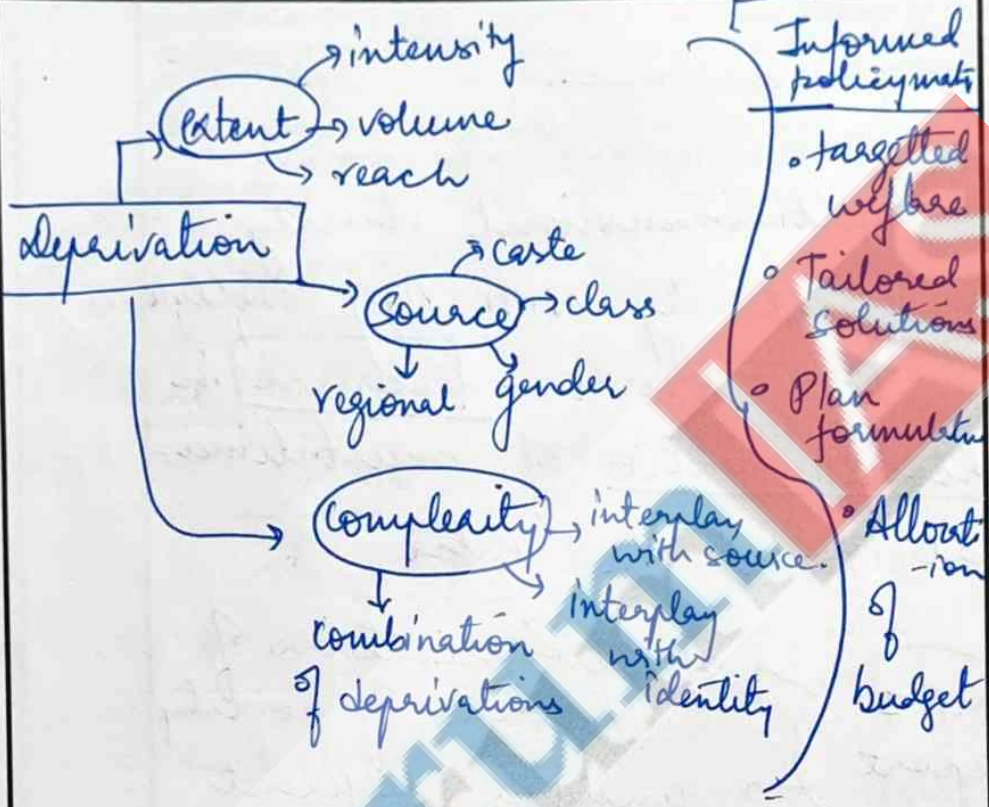 intensity
extent
volume
reach
Deprivation
caste
Source
class
regional
gender
Complexity
interplay
with source.
interplay
with
identity
combination
of deprivations
Informed
policymak
• targetted
welfare
• Tailored
solutions
• Plan
formulatn
• Allocat
-ion
of
budget
rumIAS